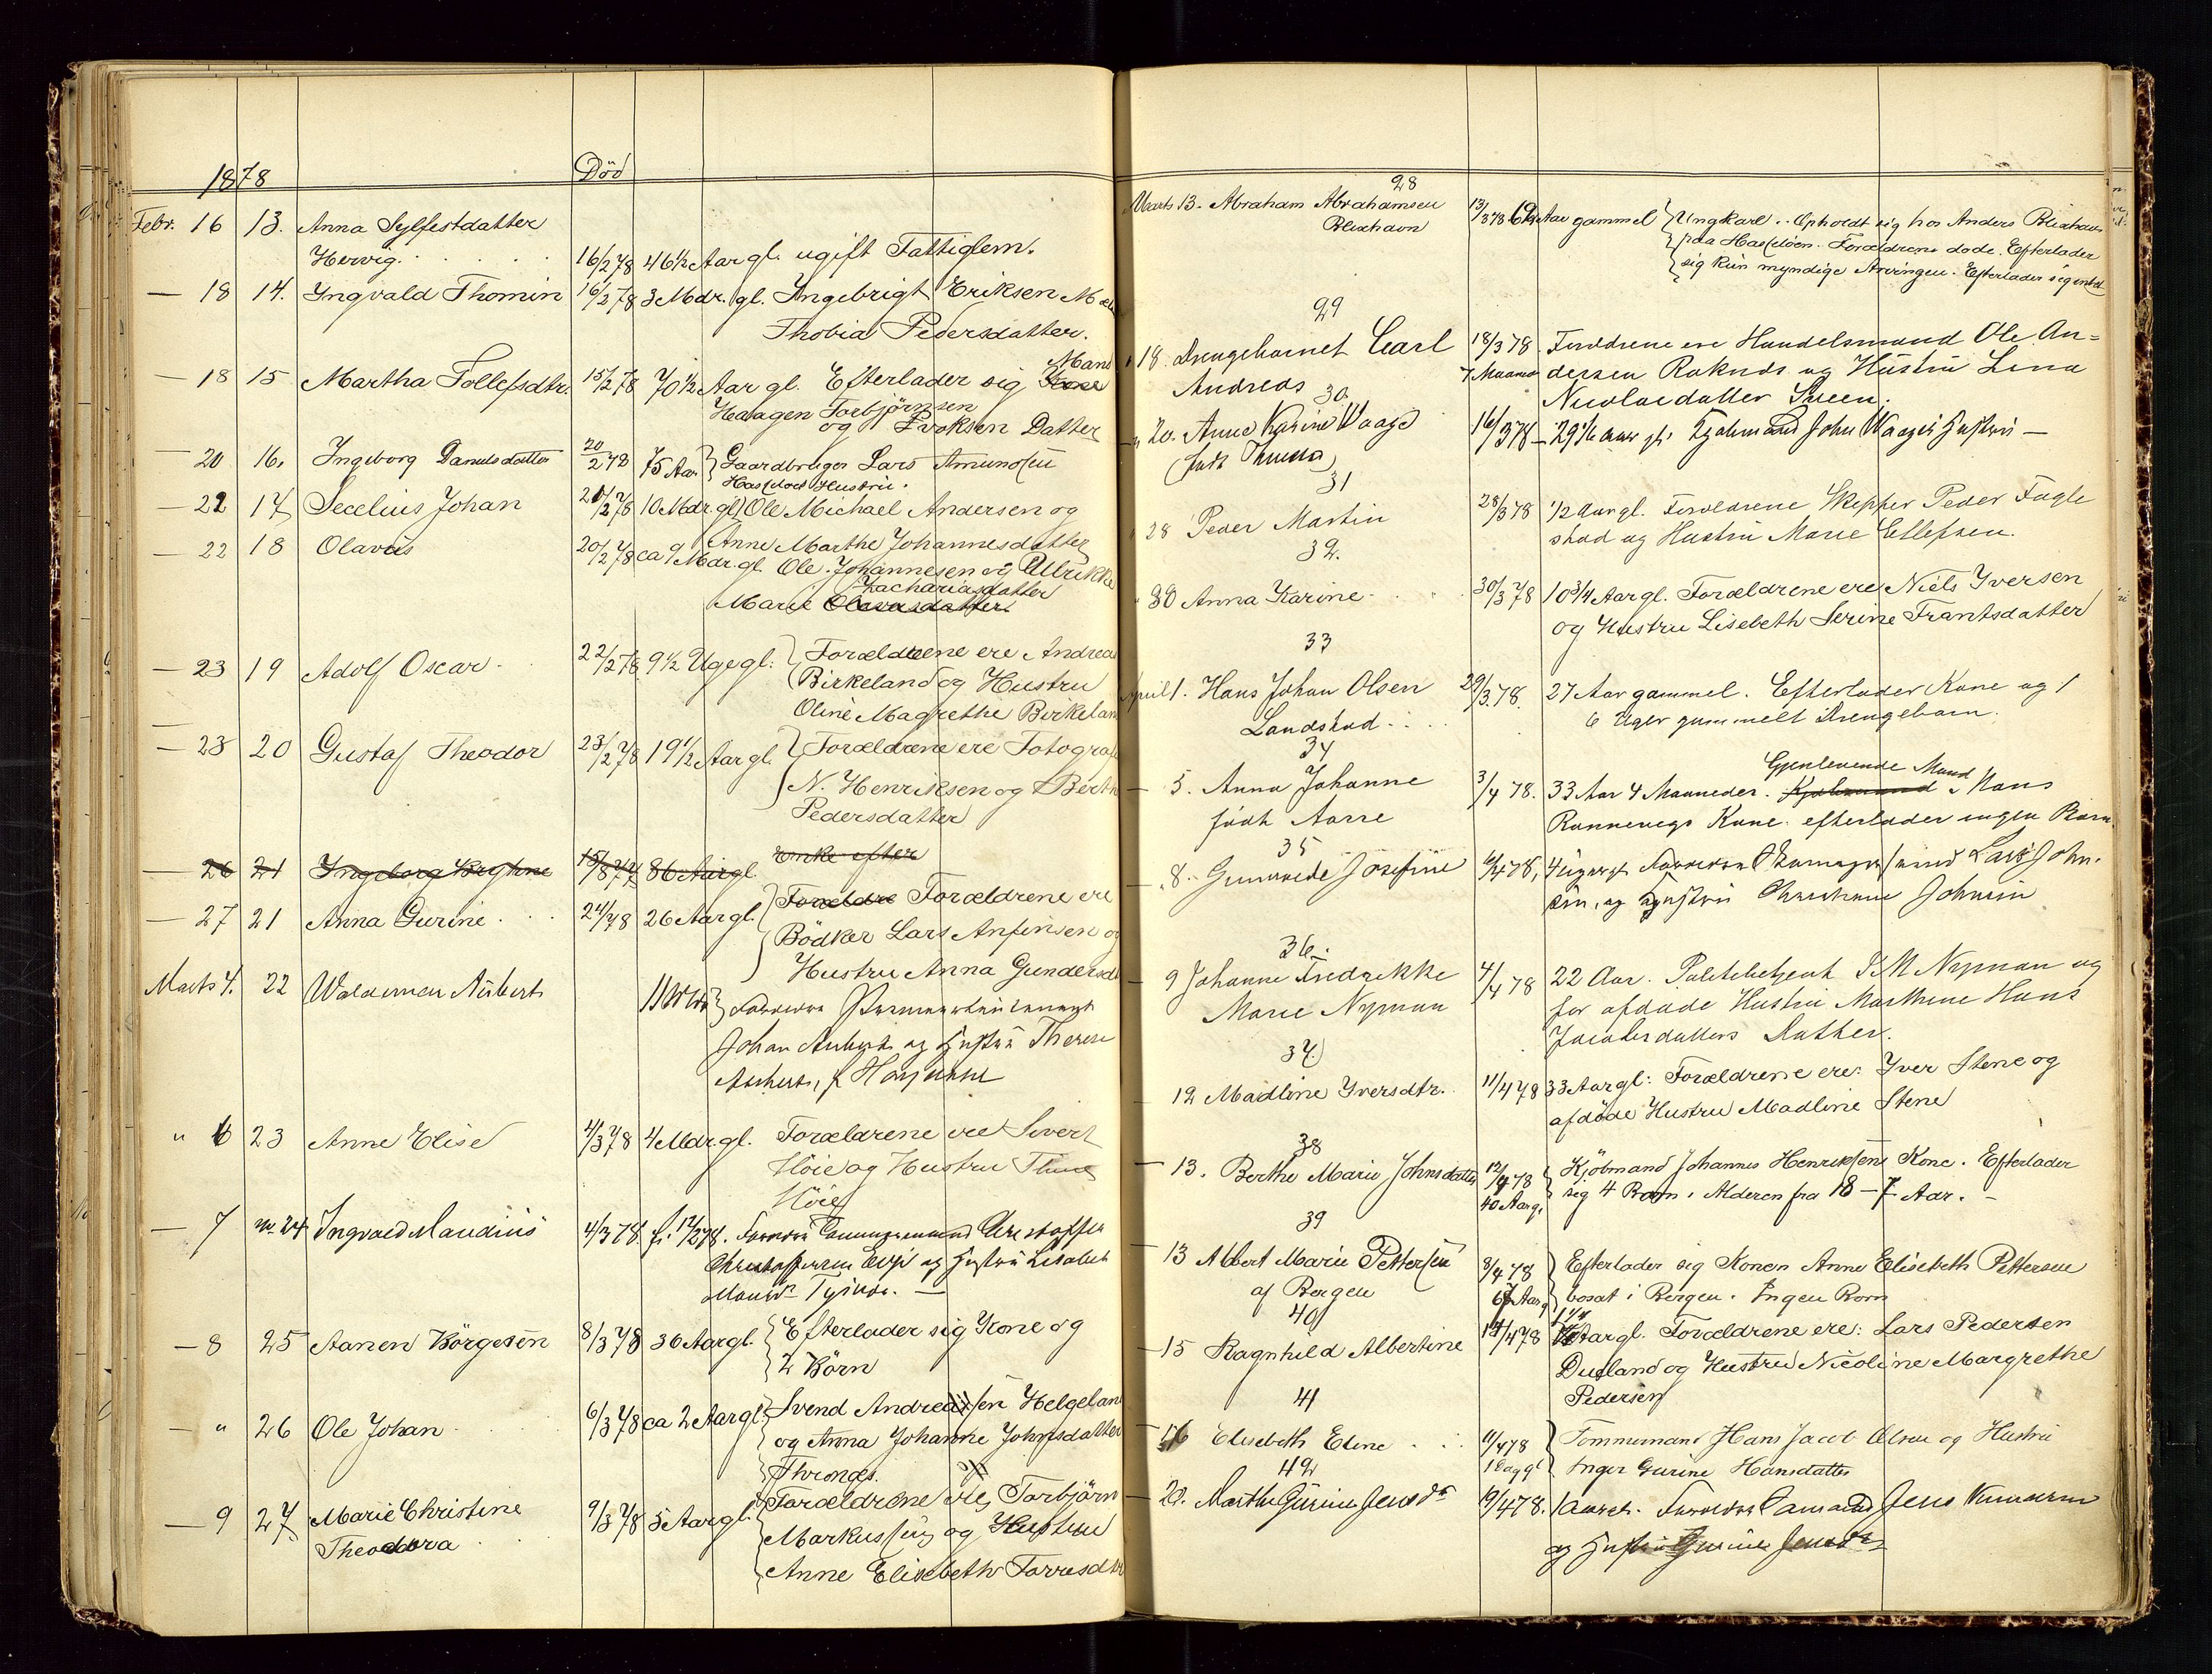 1878 Död
Febr. 16 13. Anna Sylfestdatter
Hervig. 16/2 78 46 1/2 Aar gl. ugift Fattiglem.
— 18 14. Yngvald Thomin 16/2 78 3 Mdr. gl. Ingebrigt Eriksen
Thobia Pedersdatter.
Mand
— 18 15 Martha Tollefsdtr. 15/2 78 70 1/2 Aar gl. Efterlader sig Kone
Haagen Torbjörnsen
og Voksen Datter
— 20 16. Ingeborg Danielsdatter 20/2 78 75 Aar Gaardbruger Lars Amundsen
Hasseloes Hustru.
— 22 17 Secelius Johan 20/2 78 10 Mdr. gl. Ole Michael Andersen og
Anne Marthe Johannesdatter
— 22 18 Olavus 20/2 78 ca 9 Mdr. gl. Ole Johannesen og Ulrikke
Zachariasdatter
Marie Olavasdatter
— 23 19 Adolf Oscar 22/2 78 9 1/2 Uge gl. Forældrene ere Andrea
Birkeland og Hustru
Oline Magrethe Birkelan
— 23 20 Gustaf Theodor 23/2 78 19 1/2 Aar gl. Forældrene ere Fotograf
N. Henriksen og Berth
Pedersdatter
Enke efter
— 26 21 Ingeborg 15/8 77 86 Aar gl.
— 27 21 Anna Gurine 24/78 26 Aar gl. Forældre Forældrene ere
Bödker Lars Anfinsen og
Hustru Anna Gundersd
Marts 4. 22 Waldemar Aubert 11 Mdr
Johan Aubert og Hustru Therese
Aubert, f.
" 6 23 Anne Elise 4/3 78 4 Mdr. gl. Forældrene ere Sivert
Höie og Hustru Thine
Höie
— 7 24 Ingvald Maudius 4/3 78. f. 12/2 78. Christoffer
Christoffersen og Hustru Lisabet
— 8 25 Aanen Börgesen 8/3 78 36 Aar gl. Efterlader sig Kone og
2 Börn
— " 26 Ole Johan 6/3 78 ca 2 Aar gl. Svend Andreassen Helgelan
og Anna Johanne Johnsdatter
Thronges.
— 9 27 Marie Christine 9/3 78 5 Aar gl. Forældrene ere Torbjörn
Theodora Markussen og Hustru
Anne Elisebeth Torresdtr
28
Marts 13. Abraham Abrahamsen 13/3 78 69 Aar gammel Ungkarl. Opholdt sig hos Anders Blixhavn
Blixhavn paa Hasseløen. Forældrene døde. Efterlader
sig kun myndige Arvinger. Efterlader sig intet
29
" 18. Drengebarnet Carl 18/3 78 Forældrene ere Handelsmand Ole An=
Andreas 7 Maaned dersen Raknes og Hustru Lina
Nicolaidatter Sveen.
30.
" 20. Anne Karine Waage 16/3 78 — 29 1/6 Aar gl. Kjøbmand John Waages Hustru —
(født Thueda)
31
" 28 Peder Martin 28/3 78 1/2 Aar gl. Forældrene Skipper Peder Fugle
stad og Hustru Marie Ellefsen.
32.
" 30 Anna Karine 30/3 78 10 3/4 Aar gl. Forældrene ere Niels Iversen
og Hustru Lisebeth Serine Frantsdatter
33
April 1. Hans Johan Olsen 29/3 78. 27 Aar gammel. Efterlader Kone og 1
Landstad 6 Uger gammelt Drengebarn.
34 Gjenlevende Mand
— 5. Anna Johanne 3/4 78. 33 Aar 4 Maaneder. Kjøbmand Hans
født Aarre Rannevigs Kone. efterlader ingen Børn.
35
— 8. Gunvede Josefine 6/4 78, 4 Uger gl. Lars John-
sen, og Hustru Johnsen
36.
— 9 Johanne Fredrikke 4/4 78 22 Aar. Politibetjent P M Nyman og
Marie Nyman for afdøde Hustru Marthine Hans
Jacobsdatters Datter.
37
12 Madline Iversdtr. 11/4 78 33 Aar gl: Forældrene ere: Iver Stene og
afdöde Hustru Madline Stene
38
— 13. Berthe Marie Johnsdatter 12/4 78 Kjöbmand Johannes Henriksens Kone. Efterlader
40 Aar gl sig 4 Børn i Alderen fra 18 — 7 Aar. —
39
— 13 Albert Marie Pettersen 3/4 78 Efterlader sig Konen Anne Elisebeth Pettersen
af Bergen 67 Aar g bosat i Bergen. Ingen Børn
40
— 15 Ragnhild Albertine 14/4 78 1 1/4 Aar gl. Forældrene ere: Lars Pedersen
Dueland og Hustru Nicoline Margrethe
Pedersen
41
— 16 Elisebeth Eline 11/4 78 Tømmermand Hans Jacob Olsen og Hustru
1 Dag gl Inger Gurine Hansdatter
42
— 20. Marthe Gurine Jensdr 19/4 78. 1 Jens Knudsen
og Hustru Gurine Jensdr